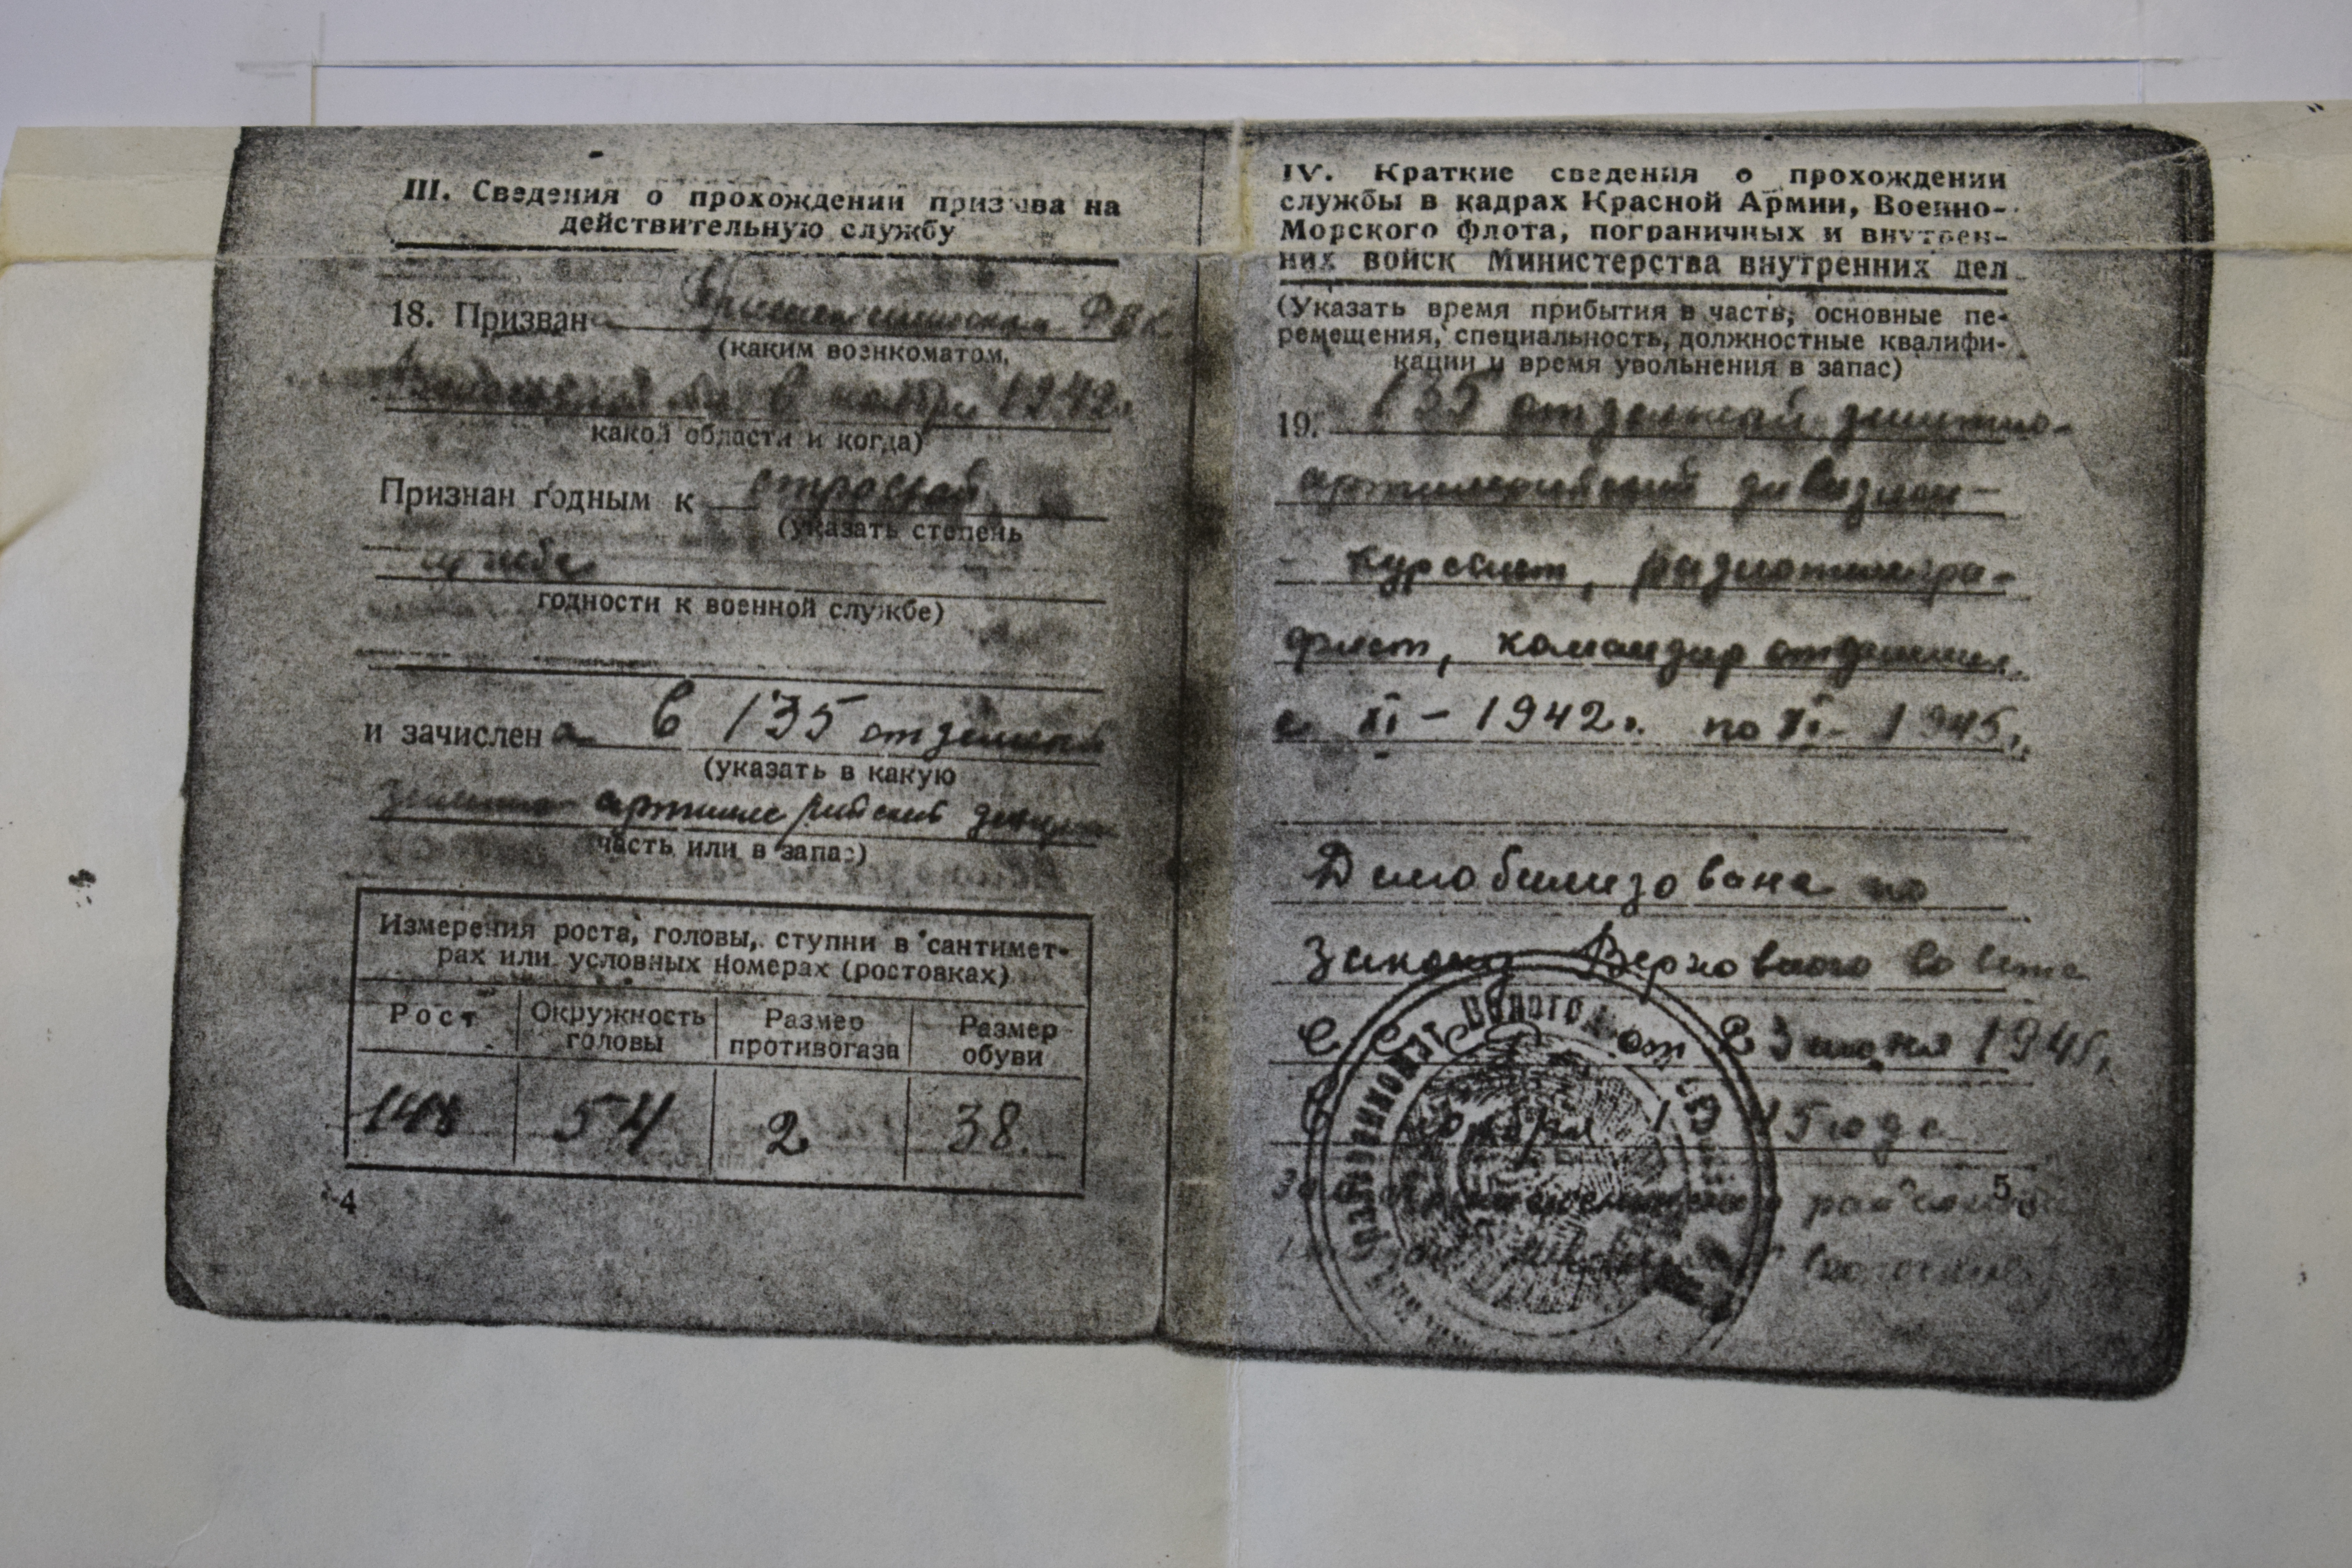 III. Сведения о прохождении призыва на
действительную службу
18. Призвана РВК
(каким военкоматом,
в ноябре 1942г.
какой области и когда)
Признан годным к строевой
(указать степень
службе
годности к военной службе)
и зачислена в 135 отдельный
(указать в какую
зенитно артиллерийский дивизион
часть или в запас)
Измерения роста, головы, ступни в сантимет-
рах или условных номерах (ростовках)
Рост Окружность головы Размер противогаза Размер обуви
148 54 2 38
4
IV. Краткие сведения о прохождении
службы в кадрах Красной Армии, Военно-
Морского флота, пограничных и внутрен-
них войск Министерства внутренних дел
(Указать время прибытия в часть, основные пе-
ремещения, специальность, должностные квалифи-
кации и время увольнения в запас)
19. 135 отдельный зенитно-
артиллерийский дивизион-
- курсант, радиотелегра-
фист, командир отделения
с XI - 1942г. по XI - 1945г.
Демобилизована по
Закону Верховного Совета
СССР от 23 июня 1945г.
В ноябре 1945 года
5